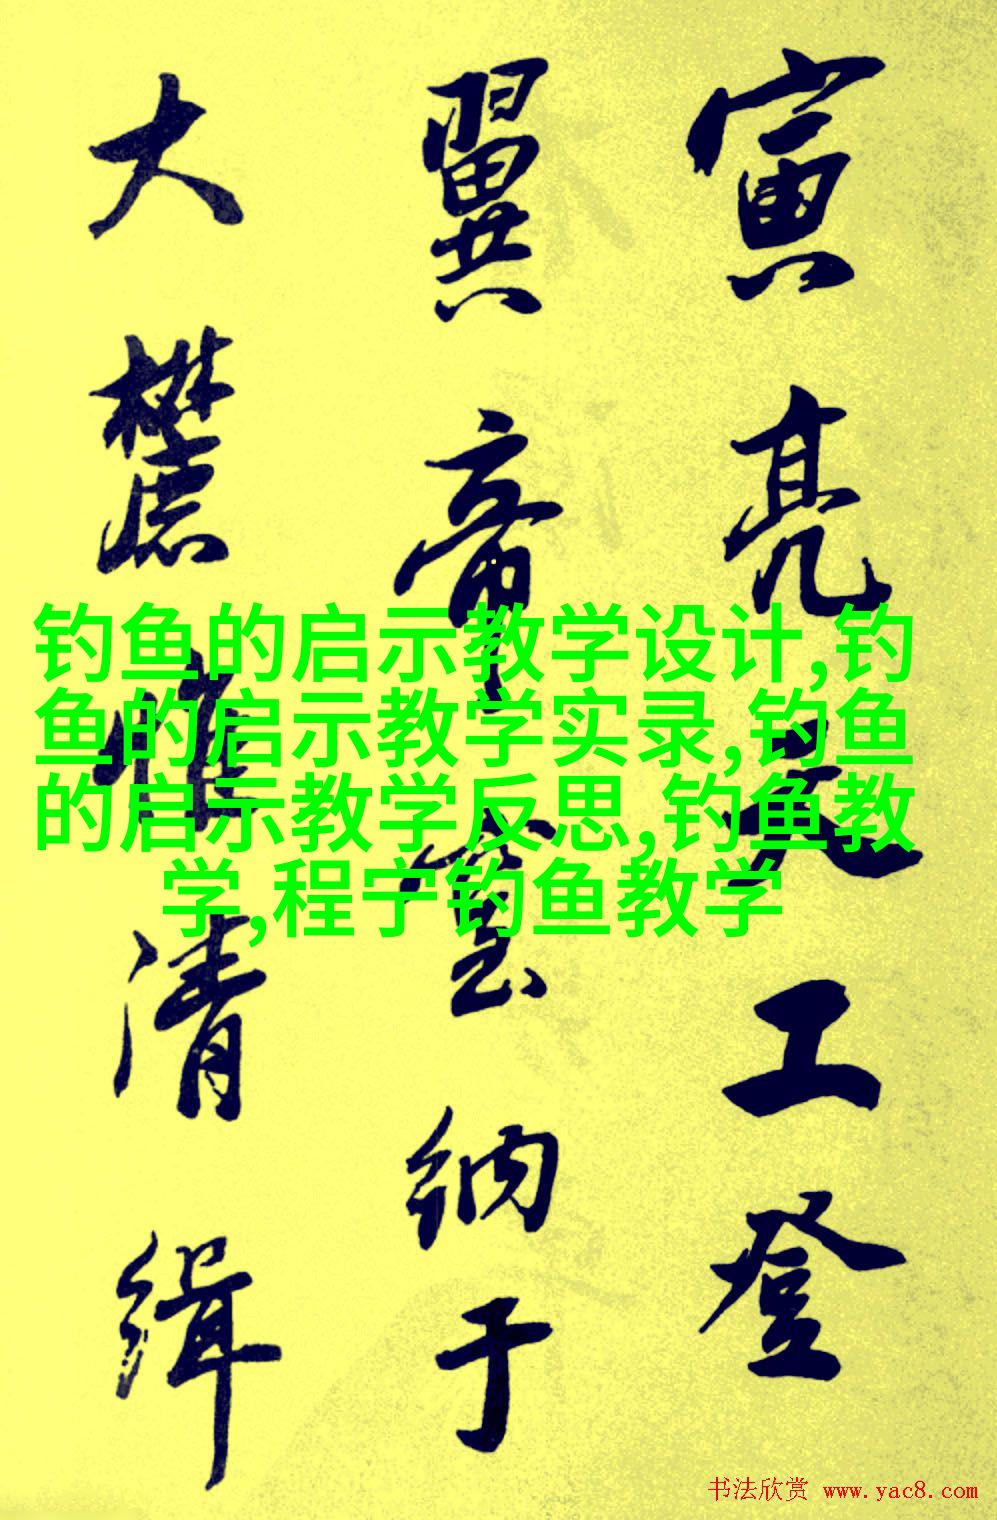 寅亮天工登
翼帝室纳于
大麓惟清缉
钓鱼的启示教学设计,钓
鱼的启示教学实录,钓鱼
的启示教学反思,钓鱼教
学,程宁钓鱼教学
书法欣赏 www.yac8.com